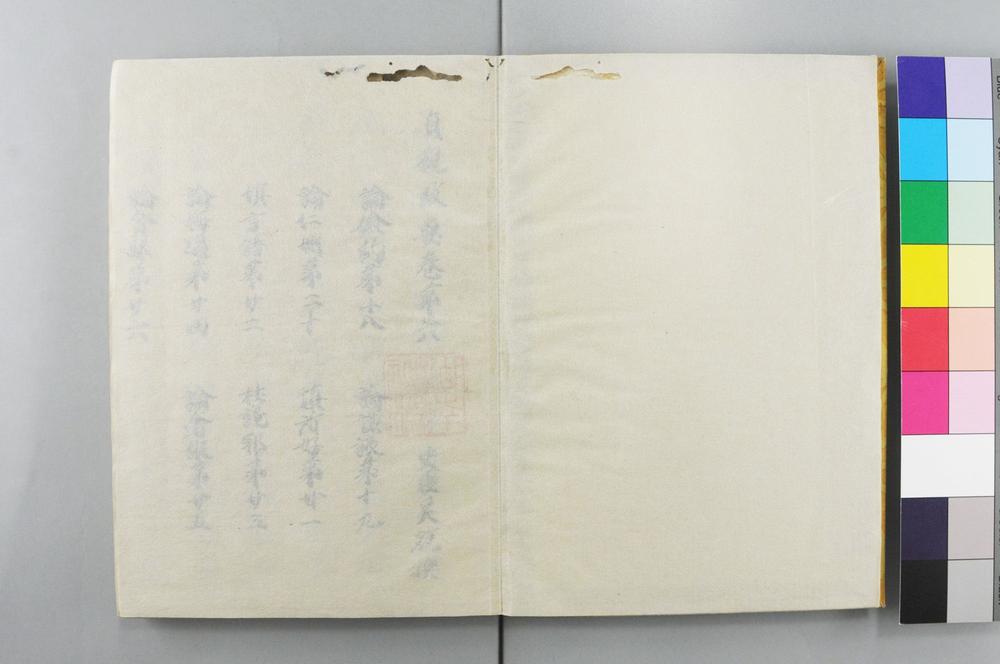 貞觀政要卷第六
史臣吳兢撰
論儉約第十八
論謙讓第十九
論仁惻第二十
慎所好第廿一
慎言語第廿二
杜讒邪第廿三
論悔過第廿四
論奢縱第廿五
論貪鄙第廿六